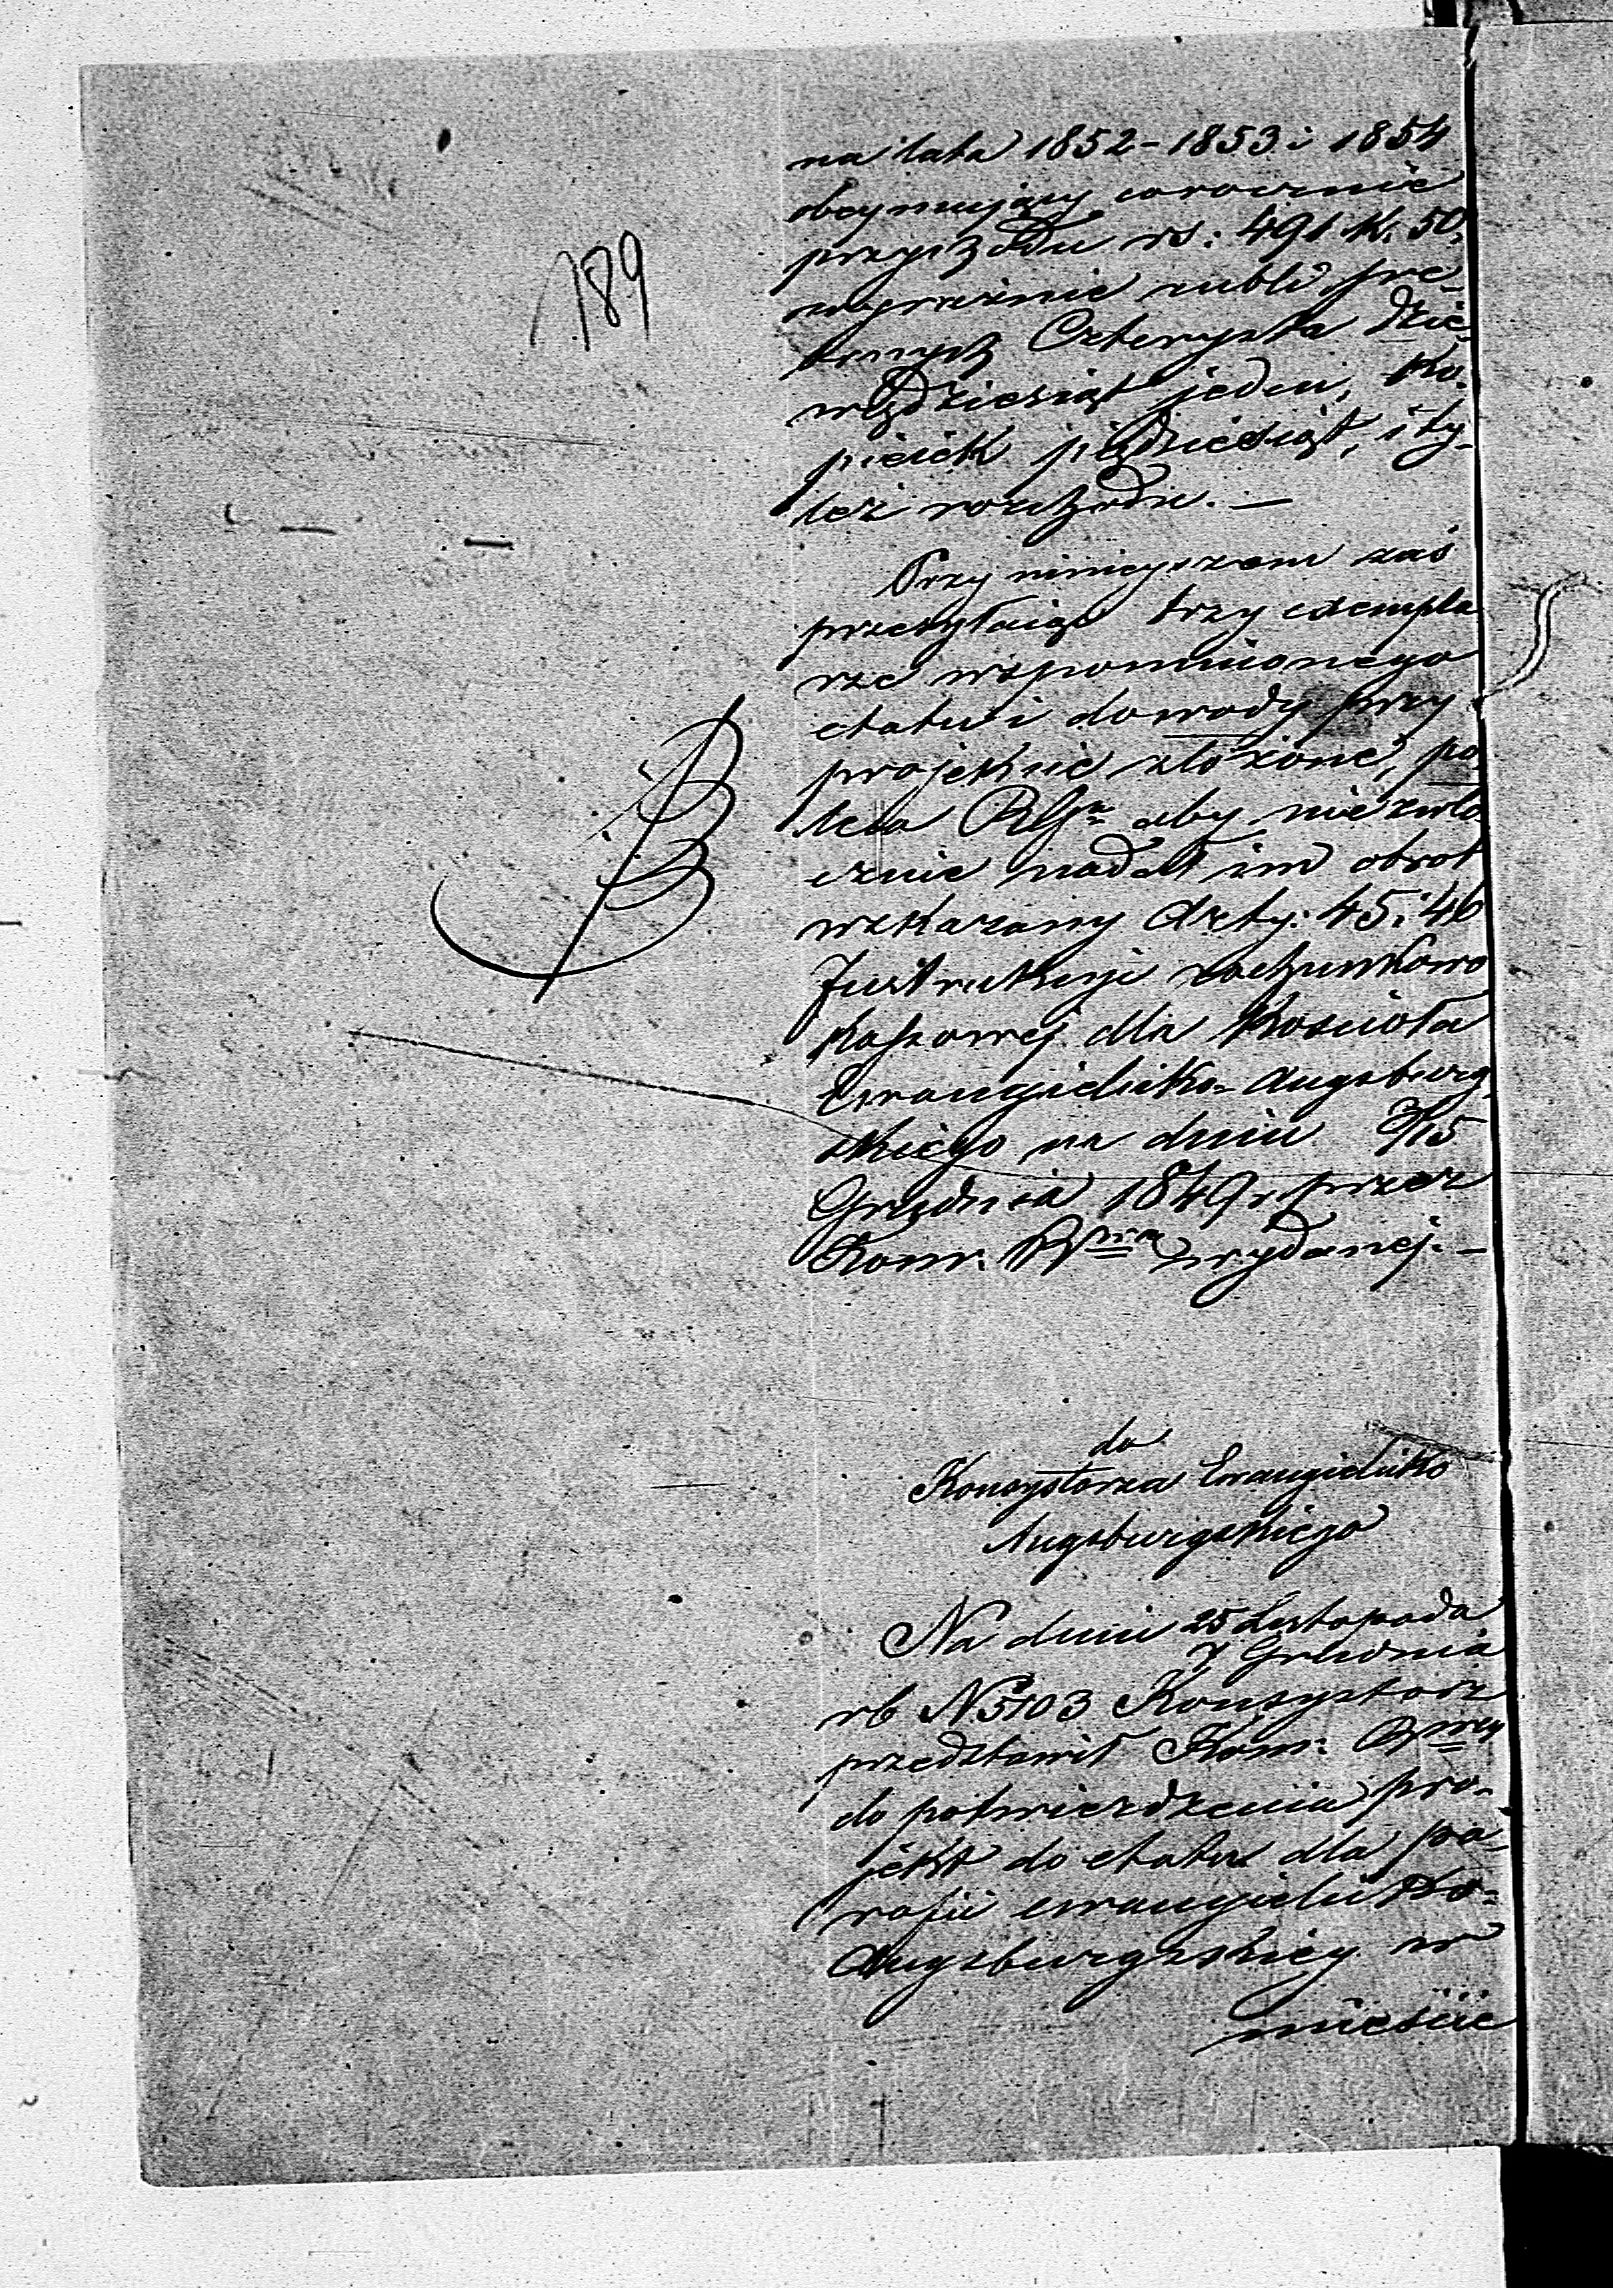 189
na lata 1852-1853 i 1854
obeymujący corocznie
przychodu rs: 491 k. 50,
wyraźnie rubli sre-
brnych Czterysta dzie-
więdziesiąt jeden, ko-
pieiek pięździesiąt, i ty-
leż rozchodu. —
Przy ninieyszem zaś
przesyłaiąc trzy exempla
rze wspomnionego
etatu i dowody przy
projekcie złożone, po
leca RGr aby niezwło
cznie nadał im obrot
wskazany Arty: 45 i 46
Instrukcyi rachunkowo
Kassowej dla Kościoła
Ewangielicko-Augsburg-
skiego na dniu 3/15
Grudnia 1849 r. przez
Kom. Rz wydanej. —
do
Konsystorza Ewangielicko
Augsburgskiego
Na dniu 25 Listopada
7 Grudnia
rb N. 5103 Konsystorz
przedstawił Kom: Rz
do potwierdzenia pro-
jekt do etatu dla pa-
rafii ewangielicko-
Augsburgskiey w
mieście